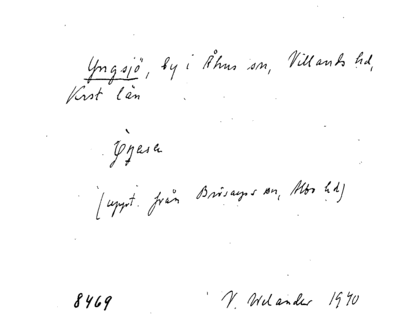 Yngsjö, by i Åhus sn, Villands hd,
Krst län
(uppt. från Brösarps sn, Albo hd)
8469 V. Welander 1940